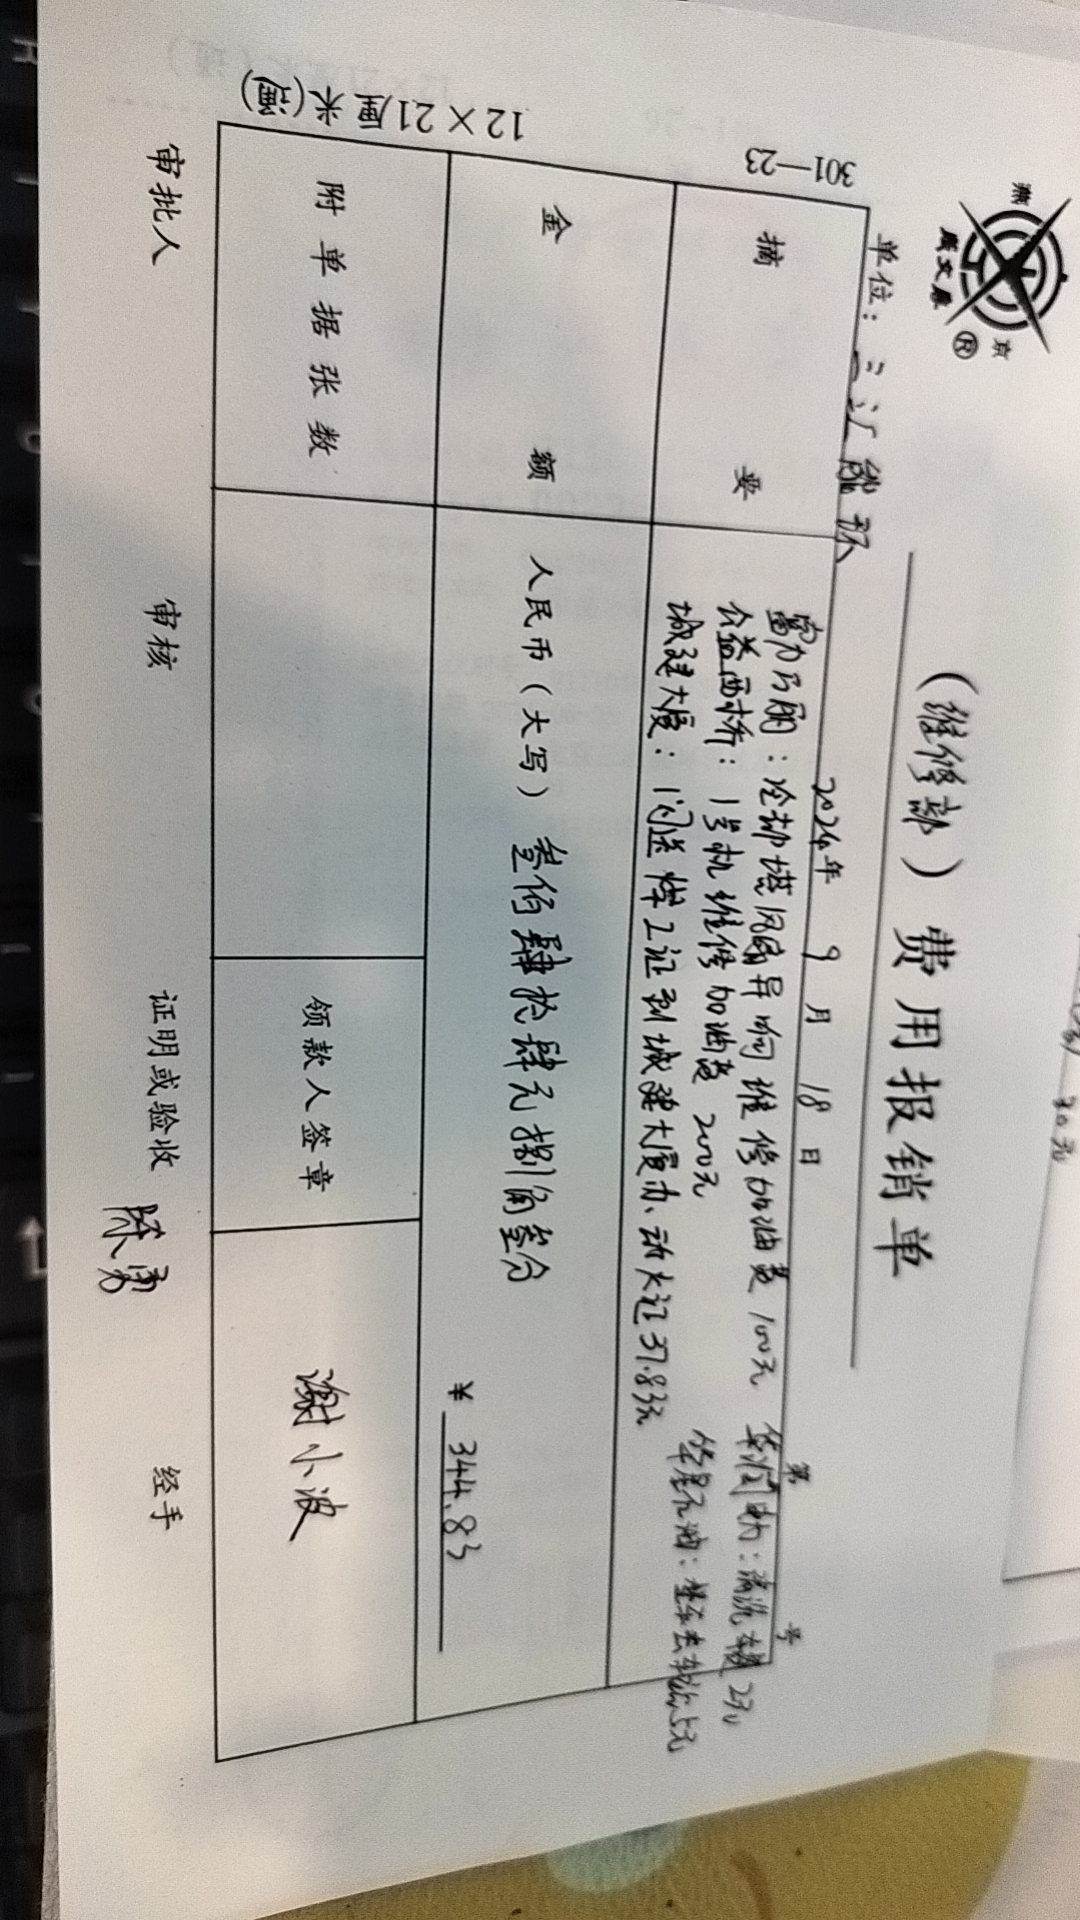 燕京
成文厚
®
(维修部) 费用报销单
单位: 三江能环 2024年 9月 18日 第 号
摘要
富力万丽: 冷却塔风扇异响维修加油费 100元
公益西桥: 1号机维修加油费 200元
城建大厦: 闪送焊工证到城建大厦办动火证37.83元
清洗 23
华星石油: 坐车去 5元
金额
人民币(大写) 叁佰肆拾肆元捌角叁分
¥ 344.83
附单据张数
领款人签章
谢小波
审批人 审核 证明或验收 陈勇 经手
301—23
12×21厘米(通)
30元